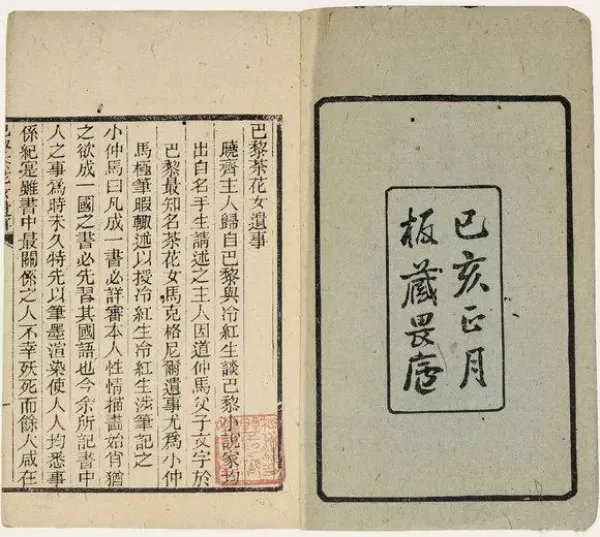 己亥正月
板藏畏廬
巴黎茶花女遺事
曉齋主人歸自巴黎與冷紅生談巴黎小說家均
出自名手生請述之主人因道仲馬父子文字於
巴黎最知名茶花女馬克格尼爾遺事尤爲小仲
馬極筆暇輒述以授冷紅生冷紅生涉筆記之
小仲馬曰凡成一書必詳審本人性情描畫始肖猶
之欲成一國之書必先習其國語也今余所記書中
人之事爲時未久特先以筆墨渲染使人人均悉事
係紀寔雖書中最關係之人不幸殀死而餘人咸在